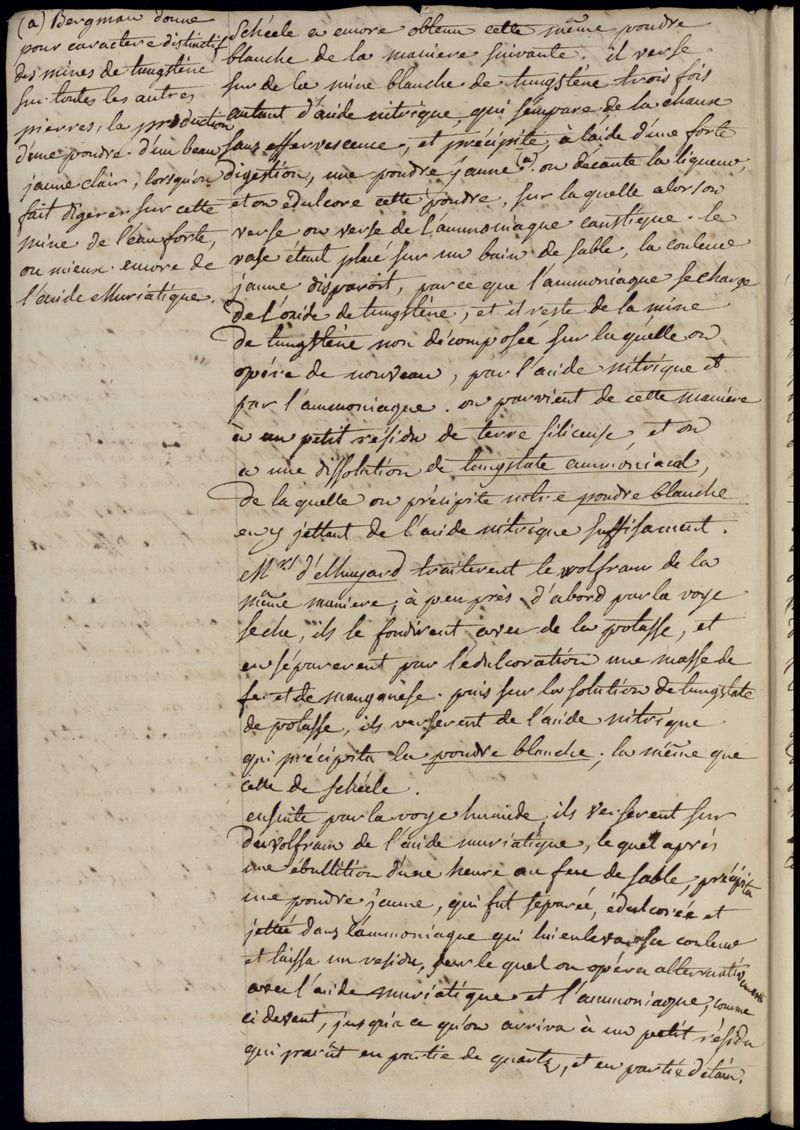 (a) Bergman donne
pour caractere distinctif
des mines de tungstène
sur toutes les autres
pierres, la production
d'une poudre d'un beau
jaune clair, lorsqu'on
fait digerer sur cette
mine de l'eau forte,
ou mieux encore de
l'acide Muriatique.
Schéele a encore obtenu cette même poudre
blanche de la maniere suivante. il verse
sur de la mine blanche de tungstène trois fois
autant d'acide nitrique, qui s'empare de la chaux
sans effervescence, et précipite, à l'aide d'une forte
digestion, une poudre jaune (a). on décante la liqueur,
et on édulcore cette poudre, sur la quelle alors on
verse on verse de l'ammoniaque caustique. le
vase étant placé sur un bain de sable, la couleur
jaune disparoit, parce que l'ammoniaque se charge
de l'oxide de tungstène, et il reste de la mine
de tungstène non décomposée sur la quelle on
opère de nouveau, par l'acide nitrique et
par l'ammoniaque. on parvient de cette maniere
à un petit résidu de terre siliceuse, et on
a une dissolution de tungstate ammoniacal,
de la quelle on précipite notre poudre blanche
en y jettant de l'acide nitrique suffisament.
Mrs d'Elhuyard traiterent le wolfram de la
même maniere, à peu près. d'abord par la voye
seche, ils le fondirent avec de la potasse, et
en séparerent par l'édulcoration une masse de
fer et de manganèse. puis sur la solution de tungstate
de potasse, ils verserent de l'acide nitrique
qui précipita la poudre blanche, la même que
cette de Schéele.
ensuite par la voye humide, ils verserent sur
du wolfram de l'acide muriatique, le quel après
une ébullition d'une heure au feu de sable, précipita
une poudre jaune, qui fut séparée, édulcorée et
jettée dans l'ammoniaque qui lui enleva sa couleur
et laissa un residu, sur le quel on opéra alternativement
avec l'acide muriatique et l'ammoniaque, comme
ci devant, jusqu'à ce qu'on arriva à un petit résidu
qui parût en partie de quartz, et en partie d'étain.